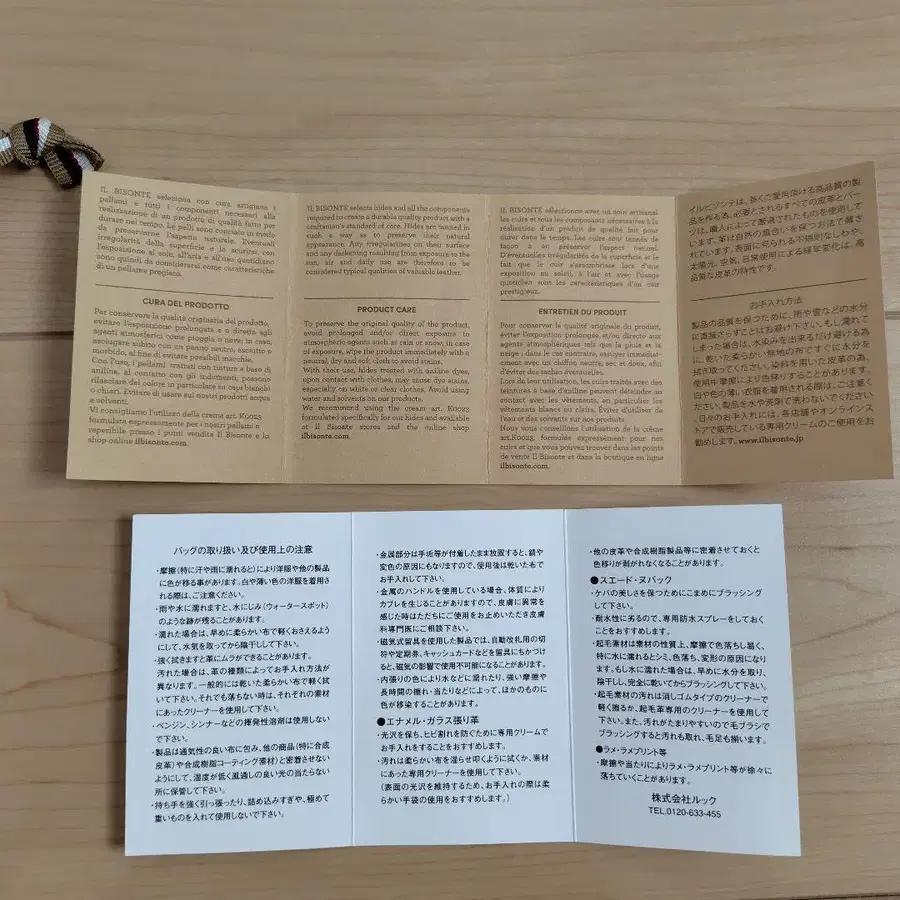 IL BISONTE seleziona con cura artigiana i
pellami e tutti i componenti necessari alla
realizzazione di un prodotto di qualità fatto per
durare nel tempo. Le pelli sono conciate in modo
da preservarne l'aspetto naturale. Eventuali
irregolarità della superficie e lo scurirsi, con
l'esposizione al sole, all'aria e all'uso quotidiano
sono quindi da considerarsi come caratteristiche
di un pellame pregiato.
CURA DEL PRODOTTO
Per conservare la qualità originaria del prodotto,
evitare l'esposizione prolungata e o diretta agli
agenti atmosferici come pioggia o neve; in caso,
asciugare subito con un panno neutro, asciutto e
morbido, al fine di evitare possibili macchie.
Con l'uso, i pellami trattati con tinture a base di
aniline, al contatto con gli indumenti, possono
rilasciare del colore in particolare su capi bianchi
o chiari. Evitare di usare sui nostri prodotti acqua
e solventi.
Vi consigliamo l'utilizzo della crema art. K0023
formulata espressamente per i nostri pellami e
reperibile presso i punti vendita Il Bisonte e lo
shop online ilbisonte.com.
IL BISONTE selects hides and all the components
required to create a durable quality product with a
craftsman's standard of care. Hides are tanned in
such a way as to preserve their natural
appearance. Any irregularities on their surface
and any darkening resulting from exposure to the
sun, air and daily use are therefore to be
considered typical qualities of valuable leather.
PRODUCT CARE
To preserve the original quality of the product,
avoid prolonged and/or direct exposure to
atmospheric agents such as rain or snow; in case
of exposure, wipe the product immediately with a
neutral, dry and soft cloth to avoid stains.
With their use, hides treated with aniline dyes,
upon contact with clothes, may cause dye stains,
especially on white or clear clothes. Avoid using
water and solvents on our products.
We recommend using the cream art. K0023
formulated specifically for our hides and available
at Il Bisonte stores and the online shop
ilbisonte.com.
IL BISONTE sélectionne avec un soin artisanal
les cuirs et tous les composants nécessaires à la
réalisation d'un produit de qualité fait pour
durer dans le temps. Les cuirs sont tannés de
façon à en préserver l'aspect naturel.
D'éventuelles irrégularités de la superficie et le
fait que le cuir s'assombrisse lors d'une
exposition au soleil, à l'air et avec l'usage
quotidien sont les caractéristiques d'un cuir
prestigieux.
ENTRETIEN DU PRODUIT
Pour conserver la qualité originale du produit,
éviter l'exposition prolongée et/ou directe aux
agents atmosphériques tels que la pluie et la
neige ; dans le cas contraire, essuyer immédiate-
ment avec un chiffon neutre, sec et doux, afin
d'éviter des taches éventuelles.
Lors de leur utilisation, les cuirs traités avec des
teintures à base d'aniline peuvent déteindre au
contact avec les vêtements, en particulier les
vêtements blancs ou clairs. Éviter d'utiliser de
l'eau et des solvants sur nos produits
Nous vous conseillons l'utilisation de la crème
art.K0023, formulée expressément pour nos
cuirs et que vous pouvez trouver dans les points
de vente Il Bisonte et dans la boutique en ligne
ilbisonte.com.
イルビゾンテは、長くご愛用頂ける高品質の製
品を作る為、必要とされるすべての皮革とパー
ツは、職人によって厳選されたものを使用して
います。革は自然の風合いを保つ方法で鞣さ
れています。表面に見られる不規則なしわや、
太陽光、空気、日常使用による経年変化は、高
品質な皮革の特性です。
お手入れ方法
製品の品質を保つために、雨や雪などの水分
に直接さらすことはお避け下さい。もし濡れて
しまった場合は、水染みを出来るだけ避ける為
に、乾いた柔らかい無地の布ですぐに水分を
拭き取ってください。染料を用いた皮革の為、
使用中摩擦により色移りすることがあります。
白や色の薄い衣服を着用される際は、ご注意く
ださい。製品を水や洗剤で洗わないでください
。日々のお手入れには、各店舗やオンラインス
トアで販売している専用クリームのご使用をお
勧めします。www.ilbisonte.jp
バッグの取り扱い及び使用上の注意
・摩擦(特に汗や雨に濡れると)により洋服や他の製品
に色が移る事があります。白や薄い色の洋服を着用さ
れる際は、ご注意ください。
・雨や水に濡れますと、水にじみ(ウォータースポット)
のような跡が残ることがあります。
・濡れた場合は、早めに柔らかい布で軽くおさえるよう
にして、水気を取ってから陰干しして下さい。
・強く拭きますと革にムラができることがあります。
汚れた場合は、革の種類によってお手入れ方法が
異なります。一般的には乾いた柔らかい布で軽く拭
いて下さい。それでも落ちない時は、それぞれの素材
にあったクリーナーを使用して下さい。
・ベンジン、シンナーなどの揮発性溶剤は使用しない
で下さい。
・製品は通気性の良い布に包み、他の商品(特に合成
皮革)や合成樹脂コーティング素材)と密着させない
ようにして、湿度が低く風通しの良い光の当たらない
所に保管して下さい。
・持ち手を強く引っ張ったり、詰め込みすぎや、極めて
重いものを入れて使用しないで下さい。
・金属部分は手垢等が付着したまま放置すると、錆や
変色の原因にもなりますので、使用後は乾いた布で
お手入れして下さい。
・金属のハンドルを使用している場合、体質により
カブレを生じることがありますので、皮膚に異常を
感じた時はただちにご使用をお止めいただき皮膚
科専門医にご相談下さい。
・磁気式留具を使用した製品では、自動改札用の切
符や定期券、キャッシュカードなどを留具にちかづけ
ると、磁気の影響で使用不可能になることがあります。
・内張りの色により水などに濡れたり、強い摩擦や
長時間の擦れ・当たりなどによって、ほかのものに
色が移染することがあります。
●エナメル・ガラス張り革
・光沢を保ち、ヒビ割れを防ぐために専用クリームで
お手入れをすることをおすすめします。
・汚れは柔らかい布を湿らせ叩くように拭くか、素材
にあった専用クリーナーを使用して下さい。
(表面の光沢を維持するため、お手入れの際は柔
らかい手袋の使用をおすすめします。)
・他の皮革や合成樹脂製品等に密着させておくと
色移りが剥がれなくなることがあります。
●スエード・ヌバック
・ケバの美しさを保つためにこまめにブラッシング
して下さい。
・耐水性に劣るので、専用防水スプレーをしておく
ことをおすすめします。
・起毛素材は素材の性質上、摩擦で色落ちし易く、
特に水に濡れるとシミ、色落ち、変形の原因になりま
す。もし水に濡れた場合は、早めに水分を取り、
陰干しし、完全に乾いてからブラッシングして下さい。
・起毛素材の汚れは消しゴムタイプのクリーナーで
軽く擦るか、起毛革専用のクリーナーを使用して
下さい。また、汚れがたまりやすいので毛ブラシで
ブラッシングすると汚れも取れ、毛足も揃います。
●ラメ・ラメプリント等
・摩擦や当たりによりラメ・ラメプリント等が徐々に
落ちていくことがあります。
株式会社ルック
TEL.0120-633-455